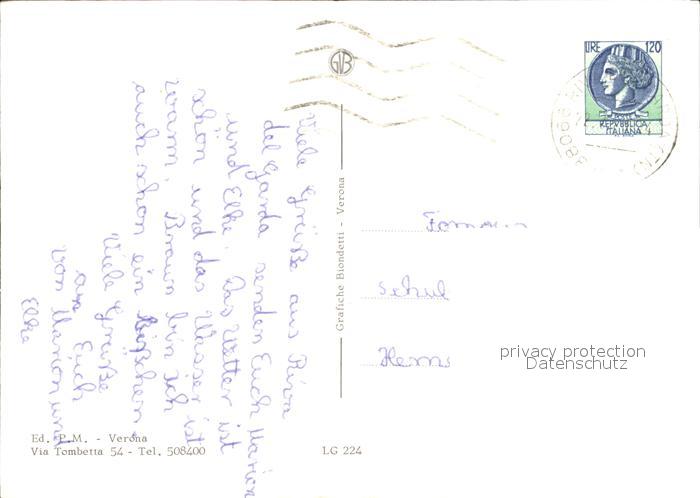 Viele Grüße aus Riva
del Garda senden Euch Marion
und Elke. Das Wetter ist
schön und das Wasser ist
warm. Braun bin ich
auch schon ein bißchen.
Viele Grüße
an Euch
von Marion und
Elke
Grafiche Biondetti - Verona
LIRE 120
POSTE
REPVBBLICA
ITALIANA
38066
privacy protection
Datenschutz
Ed. P. M. - Verona
Via Tombetta 54 - Tel. 508400
LG 224